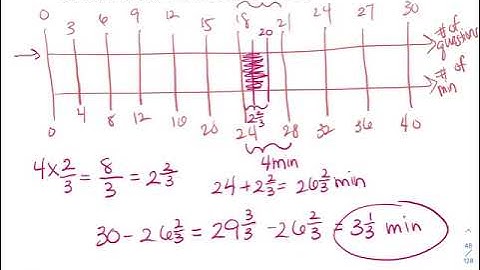 0 3 6 9 12 15 18 20 21 24 27 30 # of questions
0 4 8 12 16 20 24 28 32 36 40 # of min
2 2/3
4 min
4 x 2/3 = 8/3 = 2 2/3
24 + 2 2/3 = 26 2/3 min
30 - 26 2/3 = 29 3/3 - 26 2/3 = 3 1/3 min
48
128